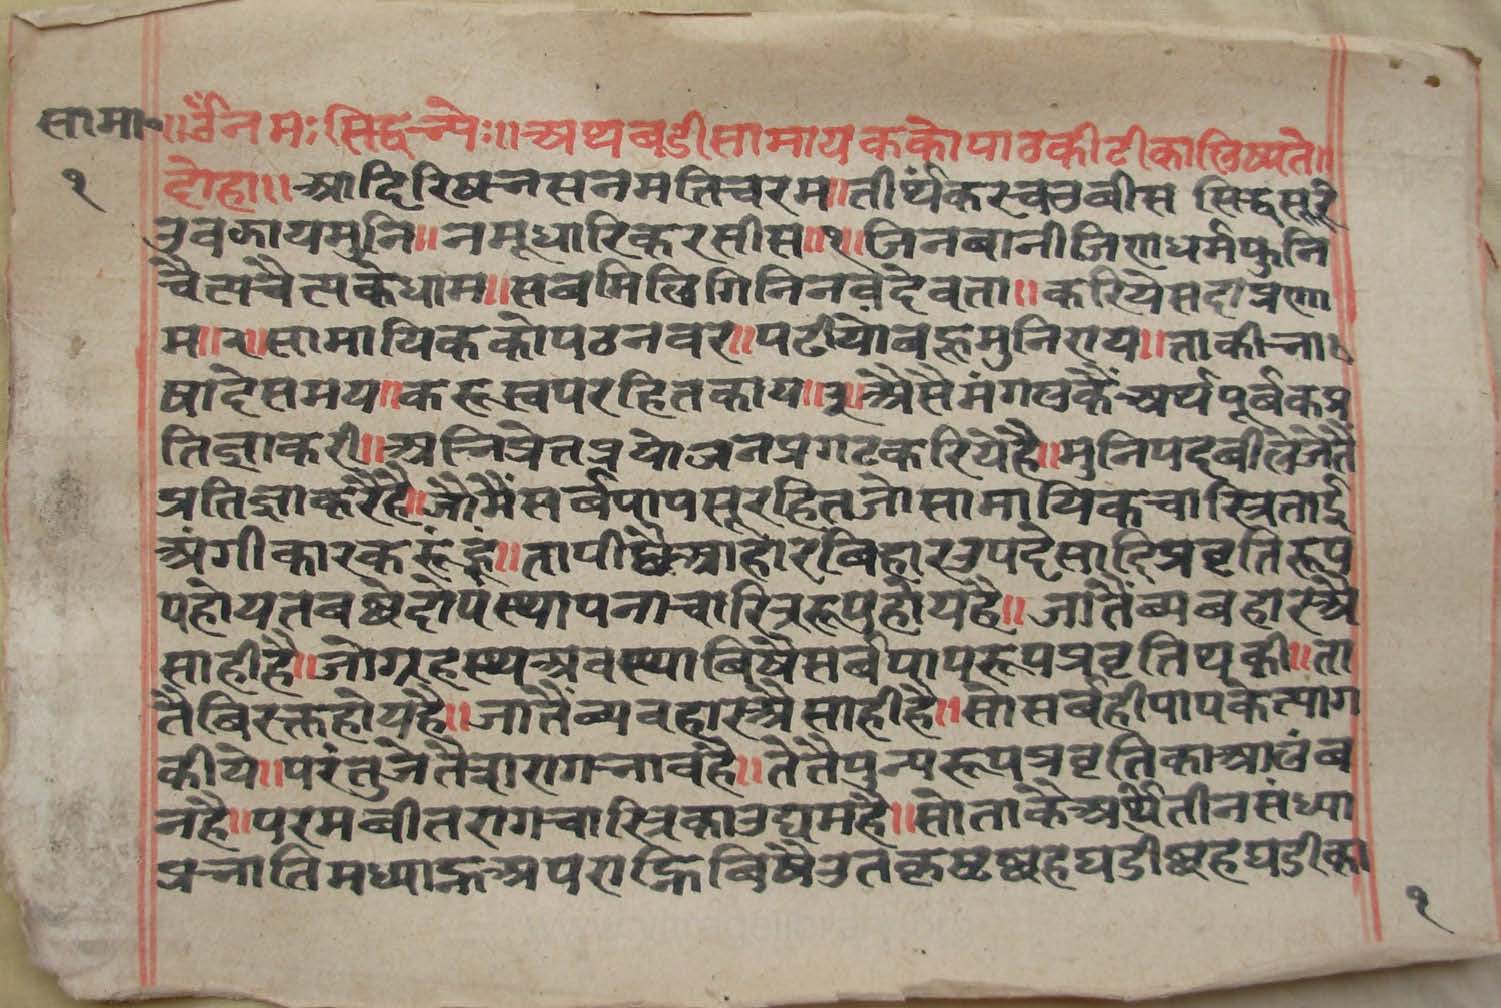 सामा॰
१
॥ॐ नमः सिद्धेभ्यः॥ अथ बडी सामायक को पाठ की टीका लिष्यते॥
दोहा॥ आदि रिषभ सनमति चरम॥ तीर्थंकर चउवीस सिद्ध सूरि
उवझाय मुनि॥ नमू धारि कर सीस॥१॥ जिनबानी जिणधर्म फुनि
चैत्य चैत्य के धाम॥ सब मिलि गिनि नव देवता॥ करिये सदा प्रणा
म॥२॥ सामायिक को पठन वर॥ पढीयो बहु मुनिराय॥ ताकी भा
षा देस मय॥ करू स्वपर हित काय॥३॥ अैसै मंगलकै अर्थ पूर्बक प्र
तिज्ञा करी॥ अभिप्रेत प्रयोजन प्रगट करिये है॥ मुनि पदवी लेतैं
प्रतिज्ञा करै है॥ जो मैं सर्ब पाप सू रहित जो सामायिक चारित्र ताई
अंगीकार करूं हूं॥ ता पीछै आहार बिहार उपदेसादि प्रवृति रूप
प होय तब छेदोपस्थापना चारित्र रूप होय है॥ जातैं ब्यबहार अै
सा ही है॥ जो गृहस्थ अवस्था बिषै सर्ब पाप रूप प्रवृति थकी॥ ता
तैं बिरक्त होय है॥ जातैं ब्यवहार अैसा ही है॥ सो सर्ब ही पाप के त्याग
कीये॥ परंतु जेतै राग भाव है॥ तेतै पुन्य रूप प्रवृति का आलंब
न है॥ परम बीतराग चारित्र का उद्यम है॥ सो ताकै अर्थि तीन संध्या
प्रभाति मध्याह्न अपराह्नि बिषै उतकृष्ट छह घडी छह घडी का
१